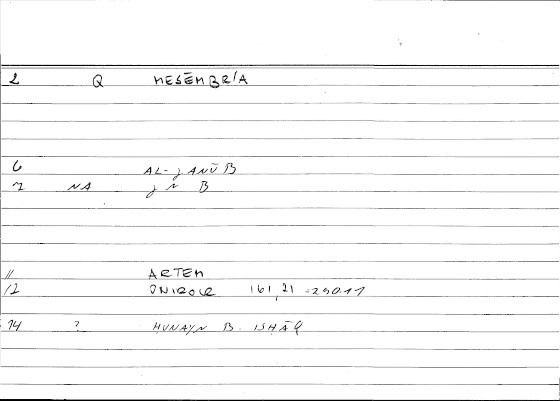 2 Q MESĒMBRIA
6 AL-ǧANŪB
7 NA ǧ N B
11 ARTEM
12 ONIROCR 161,21 =290.11
14 ? ḤUNAYN B. ISḤĀQ